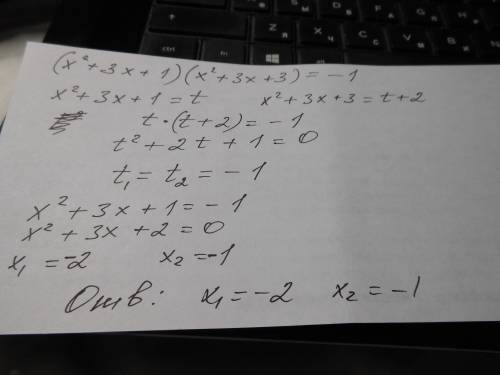 (x²+3x+1)(x²+3x+3)=-1
x²+3x+1=t x²+3x+3=t+2
t·(t+2)=-1
t²+2t+1=0
t₁=t₂=-1
x²+3x+1=-1
x²+3x+2=0
x₁=-2 x₂=-1
Отв: x₁=-2 x₂=-1